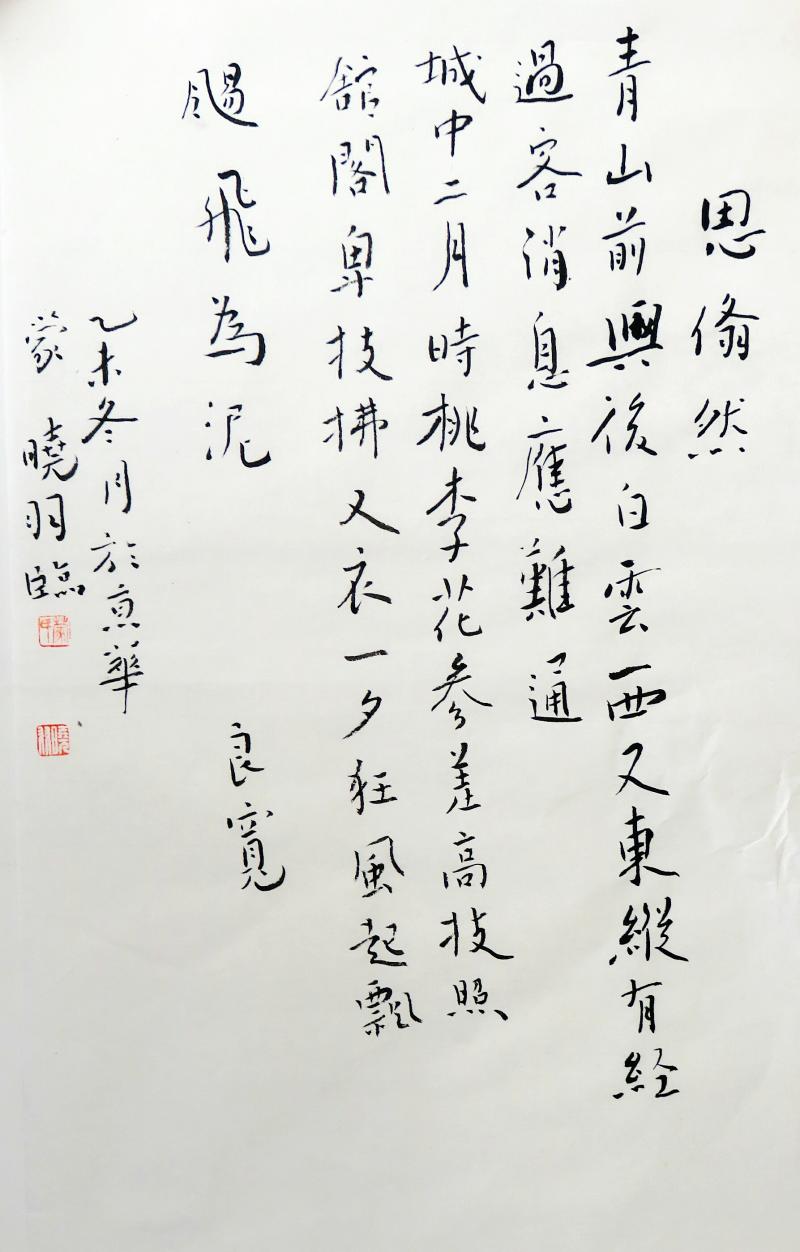 思翛然
青山前與後白雲西又東縱有経
過客消息應難通
城中二月時桃李花參差高技照
舘閣卑技拂人衣一夕狂風起飄
颺飛為泥
良寬
乙未冬月於京華
蒙曉羽臨